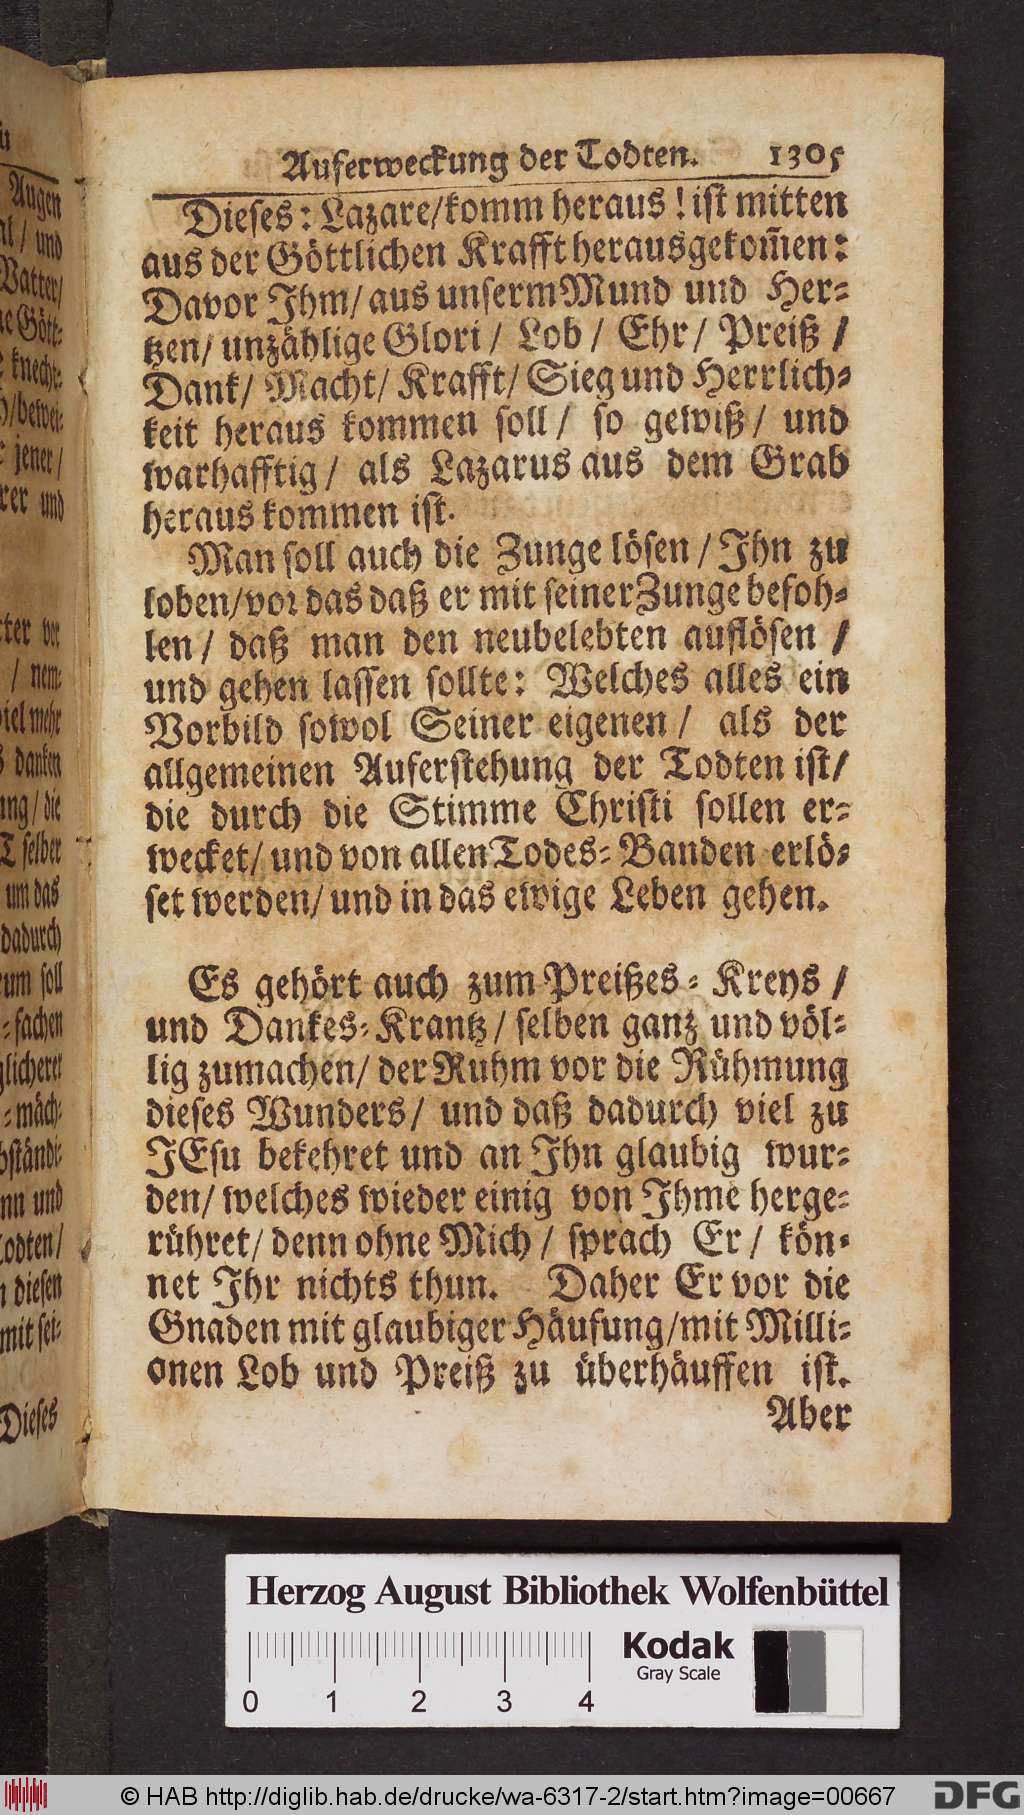 Auferweckung der Todten. 1305
Dieses: Lazare/komm heraus! ist mitten
aus der Göttlichen Krafft herausgekom̃en:
Davor Ihm/ aus unserm Mund und Her-
tzen/ unzählige Glori/ Lob/ Ehr/ Preiß/
Dank/ Macht/ Krafft/ Sieg und Herrlich-
keit heraus kommen soll/ so gewiß/ und
warhafftig/ als Lazarus aus dem Grab
heraus kommen ist.
Man soll auch die Zunge lösen/ Ihn zu
loben/vor das daß er mit seiner Zunge befoh-
len/ daß man den neubelebten auflösen/
und gehen lassen sollte: Welches alles ein
Vorbild sowol Seiner eigenen/ als der
allgemeinen Auferstehung der Todten ist/
die durch die Stimme Christi sollen er-
wecket/ und von allen Todes-Banden erlö-
set werden/ und in das ewige Leben gehen.
Es gehört auch zum Preißes-Kreys/
und Dankes-Krantz/ selben ganz und völ-
lig zumachen/ der Ruhm vor die Rühmung
dieses Wunders/ und daß dadurch viel zu
JEsu bekehret und an Ihn glaubig wur-
den/ welches wieder einig von Ihme herge-
rühret/ denn ohne Mich/ sprach Er/ kön-
net Ihr nichts thun. Daher Er vor die
Gnaden mit glaubiger Häufung/mit Milli-
onen Lob und Preiß zu überhäuffen ist.
Aber
Augen
/ und
Vatter/
Gött-
knecht-
/bewei-
jener/
und
vor
/ nem-
viel mehr
danken
/ die
selber
um das
dadurch
soll
-fachen
-mäch-
und
Todten/
diesen
mit sei-
Dieses
Herzog August Bibliothek Wolfenbüttel
Kodak
Gray Scale
0 1 2 3 4
© HAB http://diglib.hab.de/drucke/wa-6317-2/start.htm?image=00667
DFG